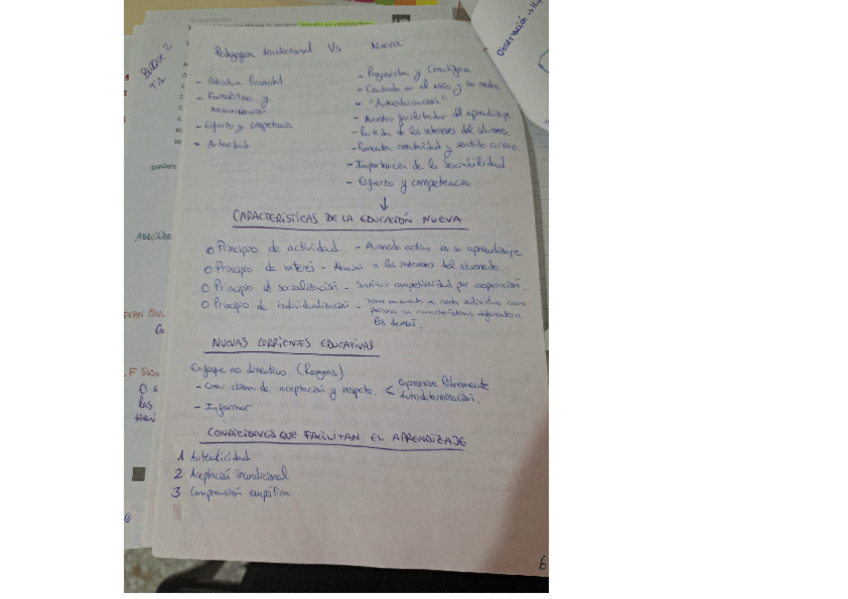 Observación →
BLOQUE 2
T1
Pedagogía tradicional Vs Nueva
- Formalismo y
memorización
- Esfuerzo y competencia
- Autoridad
- Progresista y Científica
- Centrada en el niño y su medio
- "Autoeducación"
- Maestro facilitador del aprendizaje
- Partida de los intereses del alumno.
- Fomenta creatividad y sentido crítico.
- Importancia de la Sociabilidad.
- Esfuerzo y competencia.
↓
CARACTERÍSTICAS DE LA EDUCACIÓN NUEVA
o Principio de actividad - Alumnado activo en su aprendizaje
o Principio de interés - Atención a los intereses del alumnado.
o Principio de socialización - Sustituir competitividad por cooperación.
o Principio de individualización - Tener en cuenta a cada individuo como
persona con características diferentes a
los demás.
NUEVAS CORRIENTES EDUCATIVAS
Enfoque no directivo (Rogers)
- Crear clima de aceptación y respeto. < expresarse libremente
Autodeterminación.
- Informar
CONDICIONES QUE FACILITAN EL APRENDIZAJE
1 Autenticidad
2 Aceptación incondicional
3 Comprensión empática
INNATO
ADQUIRIDO
6